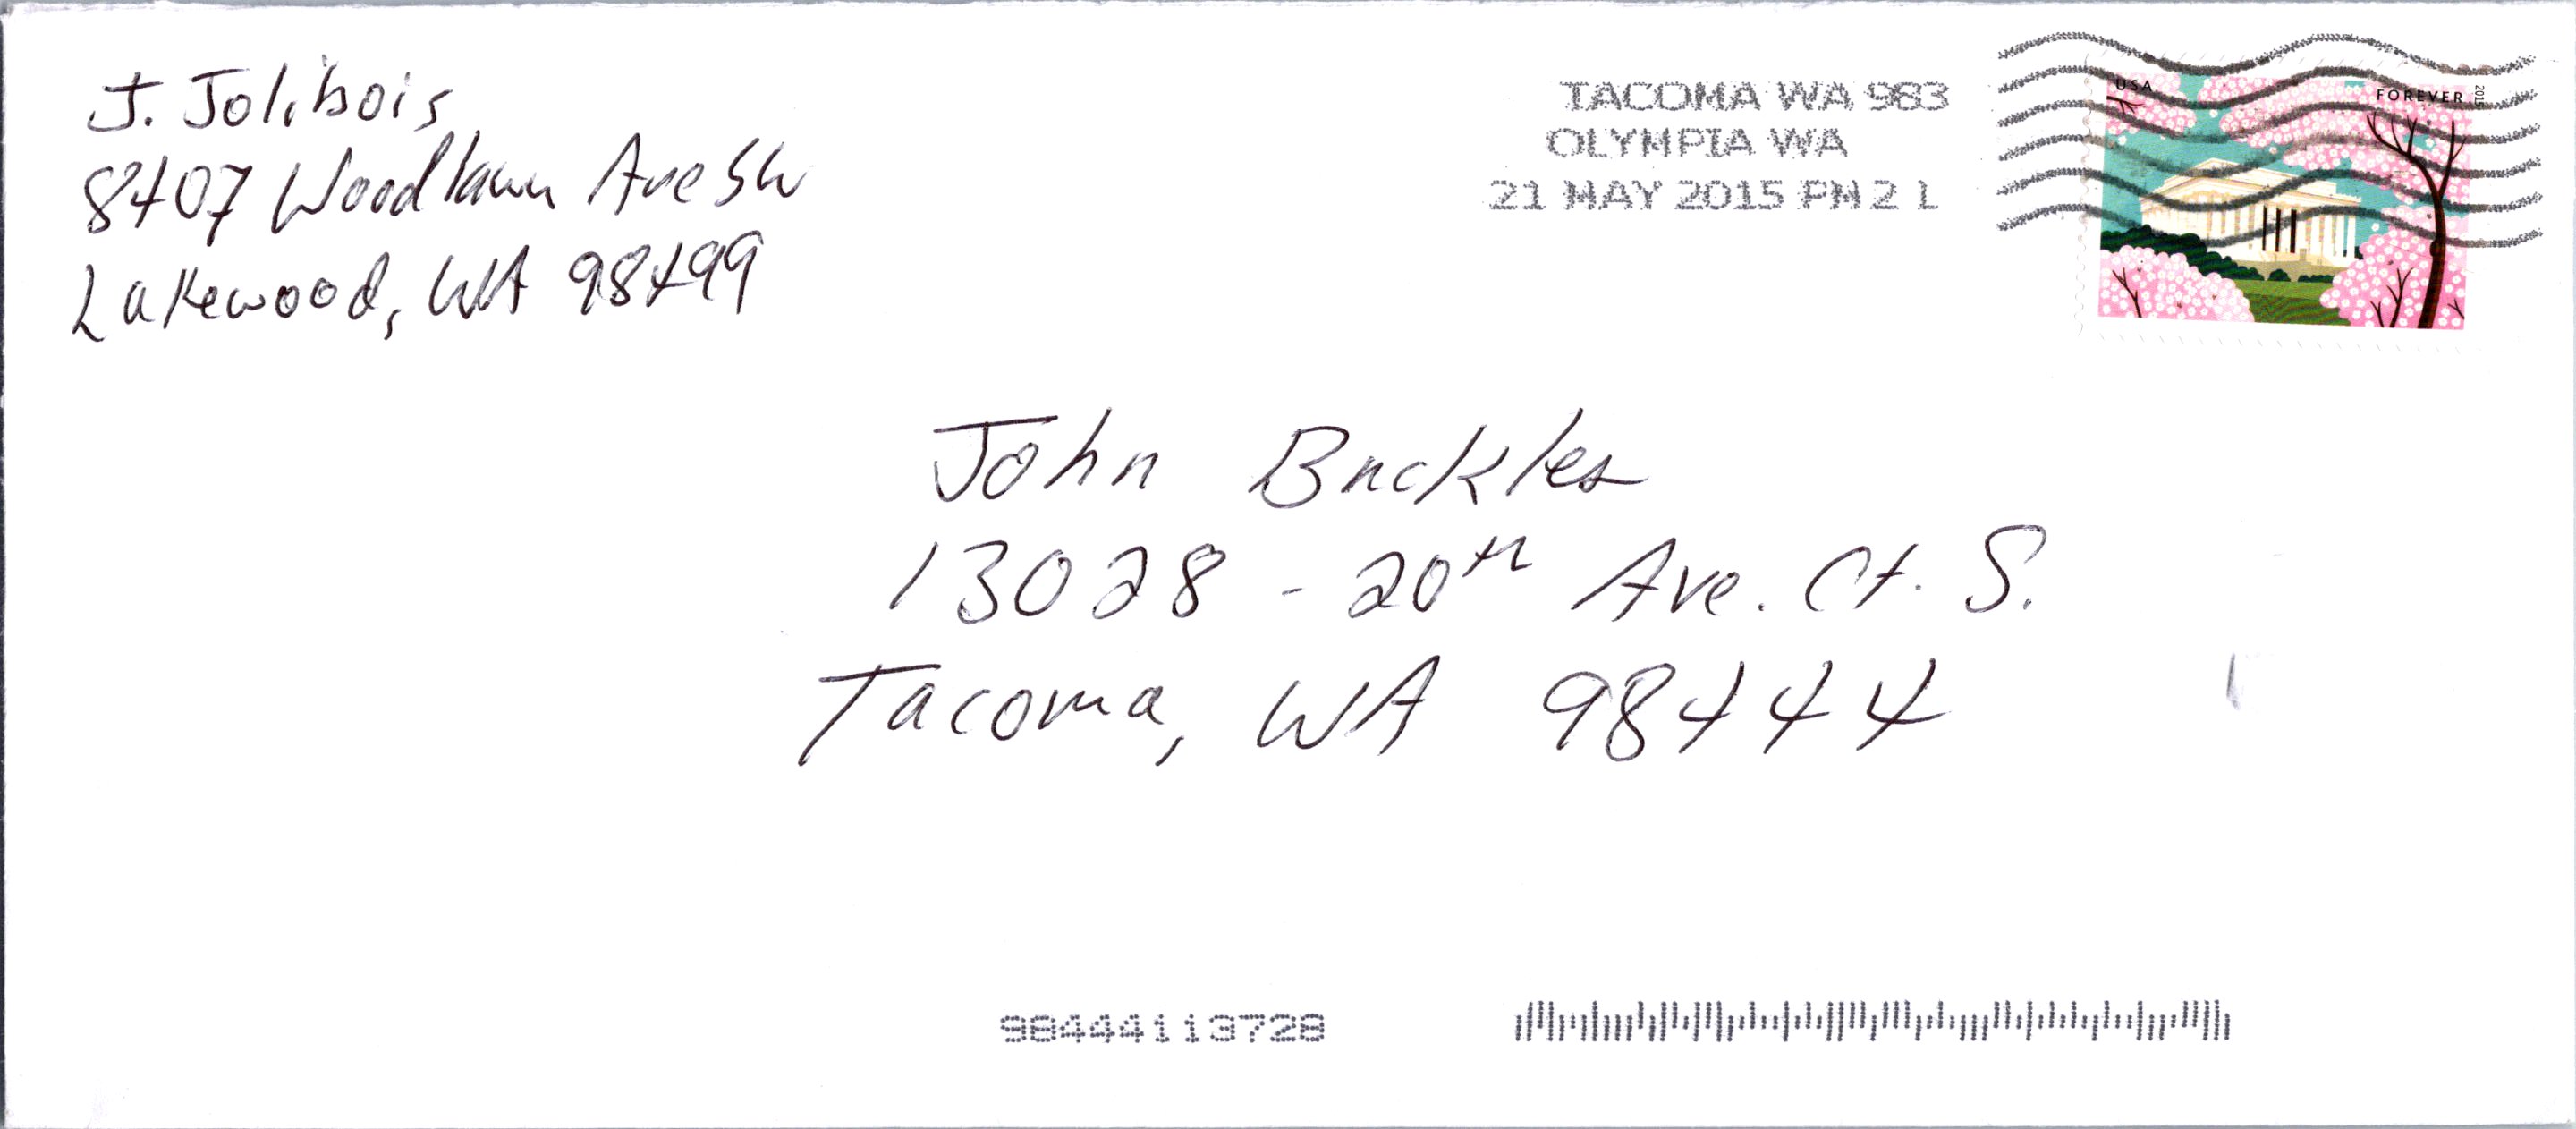 J. Jolibois
8407 Woodlawn Ave SW
Lakewood, WA 98499
TACOMA WA 983
OLYMPIA WA
21 MAY 2015 PM 2 L
USA
FOREVER
2015
John Buckles
13028 - 20th Ave. Ct. S.
Tacoma, WA 98444
98444113728